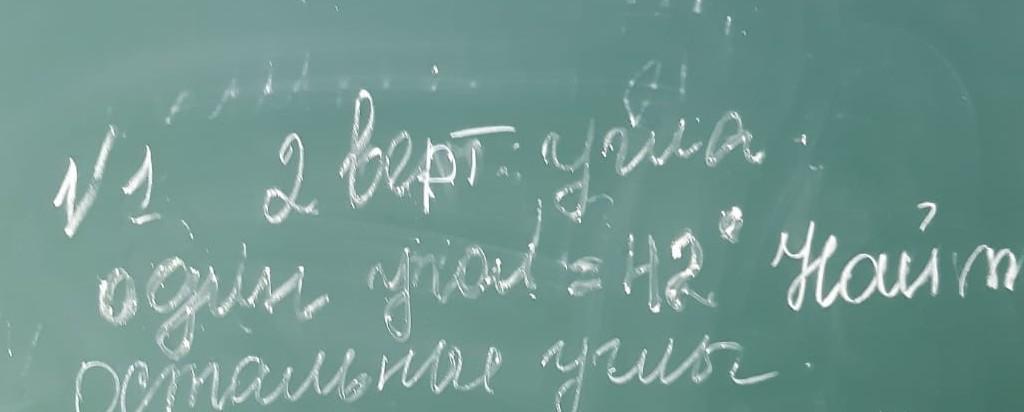 №1 2 верт. угла.
один угол = 42° Найт
остальные углы.